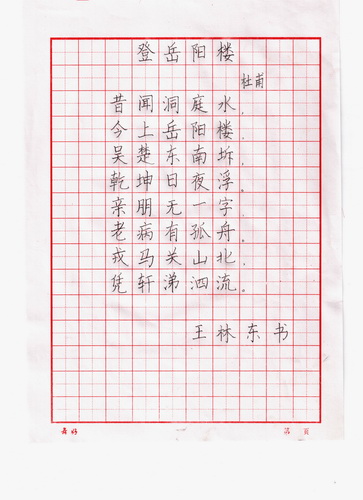 登岳阳楼
杜甫
昔闻洞庭水，
今上岳阳楼。
吴楚东南坼，
乾坤日夜浮。
亲朋无一字，
老病有孤舟。
戎马关山北，
凭轩涕泗流。
王林东书